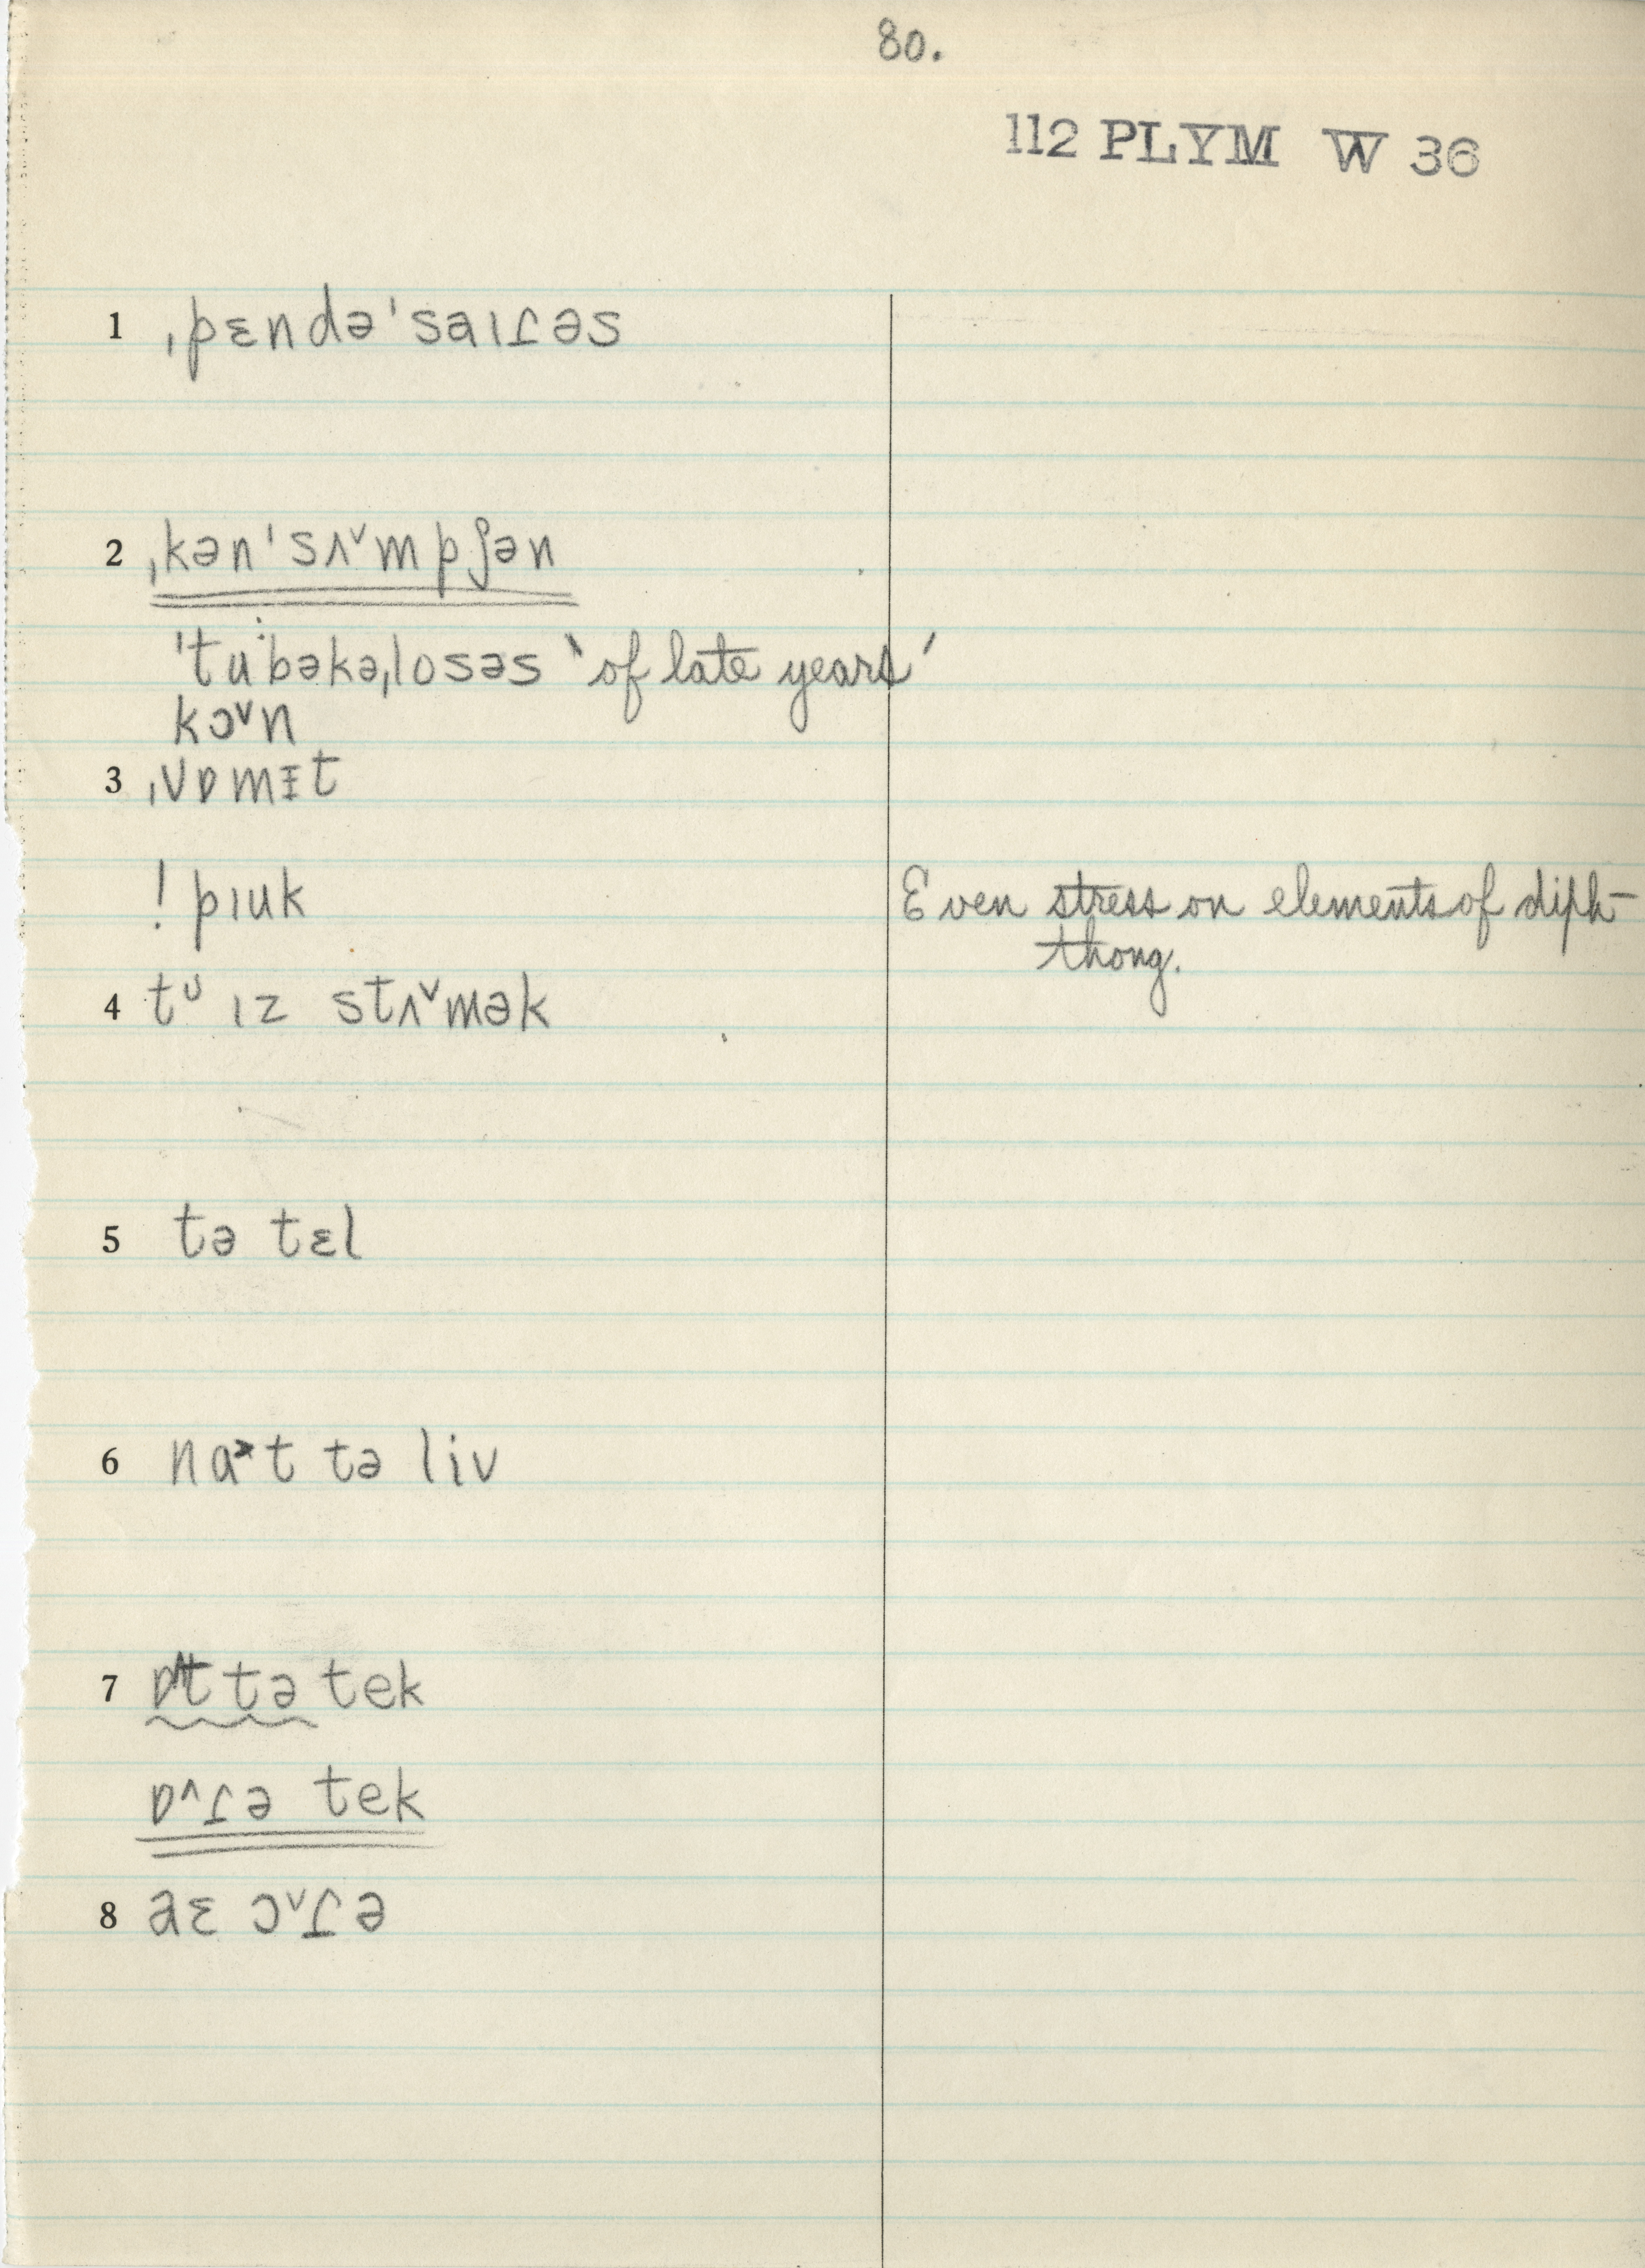 80.
112 PLYM W 36
1 ˌpɛndəˈsaɪɾəs
2 ˌkənˈsʌ˅mpʃən
ˈtu˙bəkəˌlosəs ‵of late years′
kɔ˅n
3 ˌvɒmɪ̵t
! pɪuk
Even stress on elements of diph-
thong.
4 tᶸ ɪz stʌ˅mək
5 tə tɛl
6 na˃t tə liv
7 ɒ˄t tə tek
ɒ˄ɾə tek
8 aɛ ɔ˅ɾə